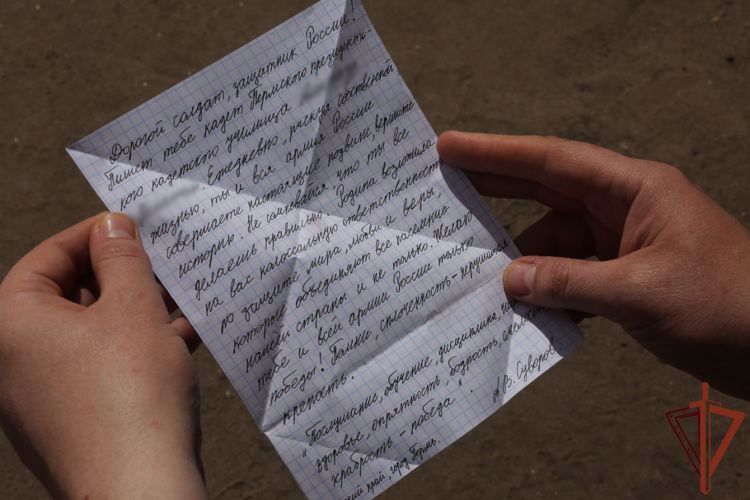 Дорогой солдат, защитник России!
Пишет тебе кадет Пермского президентс-
кого кадетского училища
Ежедневно, рискуя собственной
жизнью, ты и вся армия России
совершаете настоящие подвиги, вершите
историю. Не сомневайся, что ты все
делаешь правильно. Родина возложила
на вас колоссальную ответственность
по защите мира, любви и веры,
которые объединяют все население
нашей страны и не только. Желаю
тебе и всей армии России только
победы! Помни, сплоченность - нерушимая
крепость.
"Послушание, обучение, дисциплина,
здоровье, опрятность, бодрость,
храбрость - победа".
А. В. Суворов
край, город Пермь.